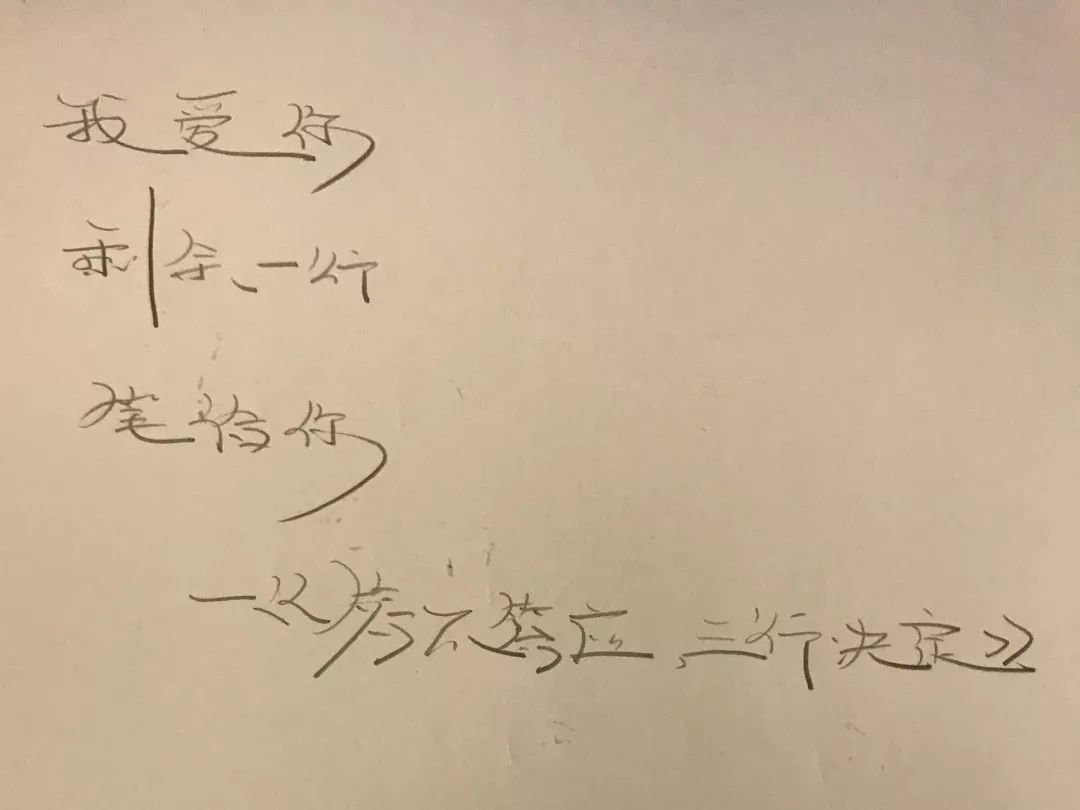 我爱你
剩余、一行
笔给你
一次答不答应,三行决定